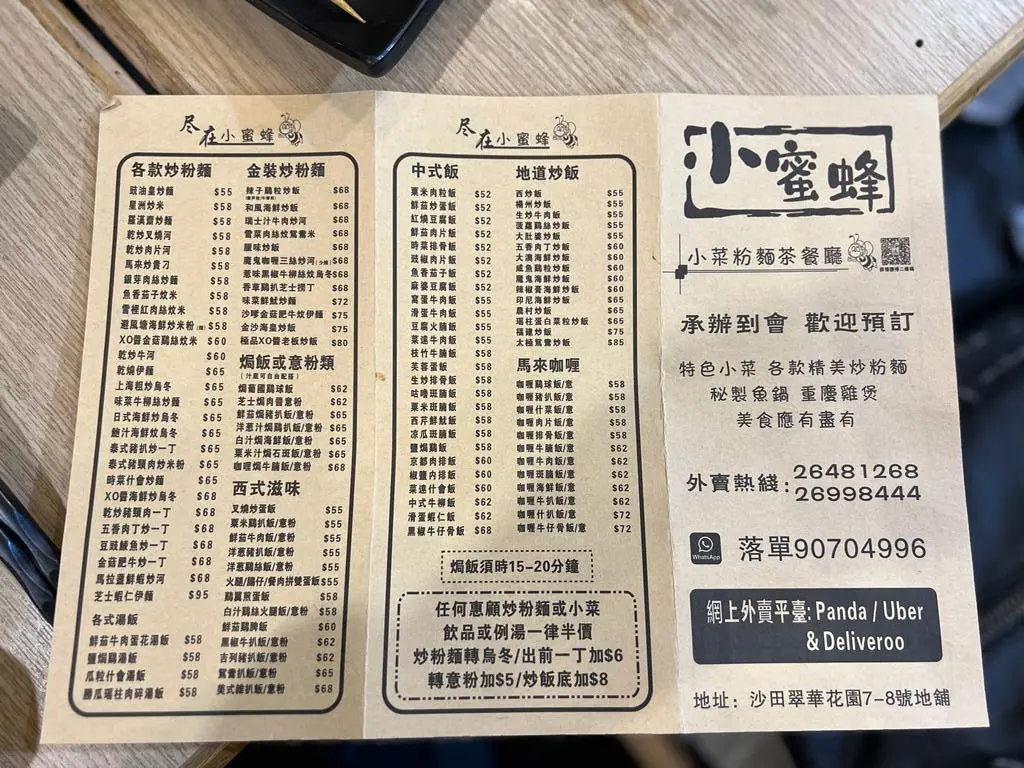 尽在小蜜蜂
各款炒粉麵
豉油皇炒麵 $55
星洲炒米 $58
羅漢齋炒麵 $58
乾炒叉燒河 $58
乾炒肉片河 $58
馬來炒貴刁 $58
銀芽肉絲炒麵 $58
魚香茄子炆米 $58
雪裡紅肉絲炆米 $58
避風塘海鮮炒米粉 $58
XO醬金菇鷄絲炆米 $60
乾炒牛河 $60
乾燒伊麵 $65
上海粗炒烏冬 $65
味菜牛柳絲炒麵 $65
日式海鮮炒烏冬 $65
鮑汁海鮮炆烏冬 $65
泰式豬扒炒一丁 $65
泰式豬頸肉炒米粉 $65
時菜什會炒麵 $65
XO醬海鮮炒烏冬 $68
乾炒豬頸肉一丁 $68
五香肉丁炒一丁 $68
豆豉鯪魚炒一丁 $68
金菇肥牛炒一丁 $68
馬拉盞鮮蝦炒河 $68
芝士蝦仁伊麵 $95
各式湯飯
鮮茄牛肉蛋花湯飯 $58
鹽焗鷄湯飯 $58
瓜粒什會湯飯 $58
勝瓜瑤柱肉碎湯飯 $58
金裝炒粉麵
辣子鷄粒炒飯 $68
和風海鮮炒飯 $68
瑞士汁牛肉炒河 $68
雪菜肉絲炆鴛鴦米 $68
臘味炒飯 $68
魔鬼咖喱三絲炒河(少辣) $68
惹味黑椒牛柳絲炆烏冬 $68
香草鷄扒芝士撈丁 $68
味菜鮮魷炒麵 $72
沙嗲金菇肥牛炆伊麵 $75
金沙海皇炒飯 $75
極品XO醬老板炒飯 $80
焗飯或意粉類
(汁底可自由配搭)
焗葡國鷄球飯 $62
芝士焗肉醬意粉 $62
鮮茄焗豬扒飯/意粉 $65
洋葱汁焗鷄扒飯/意粉 $65
白汁焗海鮮飯/意粉 $65
粟米汁焗石斑飯/意粉 $65
咖哩焗牛腩飯/意粉 $68
西式滋味
叉燒炒蛋飯 $55
粟米鷄扒飯/意粉 $55
鮮茄牛肉飯/意粉 $55
洋葱豬扒飯/意粉 $55
洋葱鷄絲飯/意粉 $55
火腿/腸仔/餐肉拼雙蛋飯 $55
鷄翼煎蛋飯 $58
白汁鷄絲火腿飯/意粉 $58
鮮茄鷄脾飯 $60
黑椒牛扒飯/意粉 $62
吉列豬扒飯/意粉 $62
鴛鴦扒飯/意粉 $65
美式雜扒飯/意粉 $68
尽在小蜜蜂
中式飯
粟米肉粒飯 $52
鮮茄炒蛋飯 $52
紅燒豆腐飯 $52
鮮茄肉片飯 $52
時菜排骨飯 $52
豉椒肉片飯 $52
魚香茄子飯 $52
麻婆豆腐飯 $52
窩蛋牛肉飯 $55
滑蛋牛肉飯 $55
豆腐火腩飯 $55
菜遠牛肉飯 $55
枝竹牛腩飯 $58
芙蓉蛋飯 $58
生炒排骨飯 $58
咕嚕斑腩飯 $58
粟米斑腩飯 $58
西芹鮮魷飯 $58
凉瓜斑腩飯 $58
鹽焗鷄飯 $58
京都肉排飯 $60
椒鹽肉排飯 $60
菜遠什會飯 $60
中式牛柳飯 $62
滑蛋蝦仁飯 $62
黑椒牛仔骨飯 $68
地道炒飯
西炒飯 $55
楊州炒飯 $55
生炒牛肉飯 $55
菠蘿鷄絲炒飯 $55
大肚婆炒飯 $55
五香肉丁炒飯 $60
大澳海鮮炒飯 $60
咸魚鷄粒炒飯 $60
魔鬼海鮮炒飯 $60
辣椒膏海鮮炒飯 $60
印尼海鮮炒飯 $65
農村炒飯 $65
瑤柱蛋白菜粒炒飯 $65
福建炒飯 $75
太極鴛鴦炒飯 $85
馬來咖喱
咖喱鷄球飯/意 $58
咖喱豬扒飯/意 $58
咖喱什菜飯/意 $58
咖喱肉片飯/意 $58
咖喱排骨飯/意 $58
咖喱牛腩飯/意 $62
咖喱牛肉飯/意 $62
咖喱斑腩飯/意 $62
咖喱海鮮飯/意 $62
咖喱牛扒飯/意 $62
咖喱什扒飯/意 $72
咖喱牛仔骨飯/意 $72
焗飯須時15-20分鐘
任何惠顧炒粉麵或小菜
飲品或例湯一律半價
炒粉麵轉烏冬/出前一丁加$6
轉意粉加$5/炒飯底加$8
小蜜蜂
小菜粉麵茶餐廳
承辦到會 歡迎預訂
特色小菜 各款精美炒粉麵
秘製魚鍋 重慶雞煲
美食應有盡有
外賣熱綫:26481268
26998444
WhatsApp
落單90704996
網上外賣平臺:Panda / Uber
& Deliveroo
地址：沙田翠華花園7-8號地舖